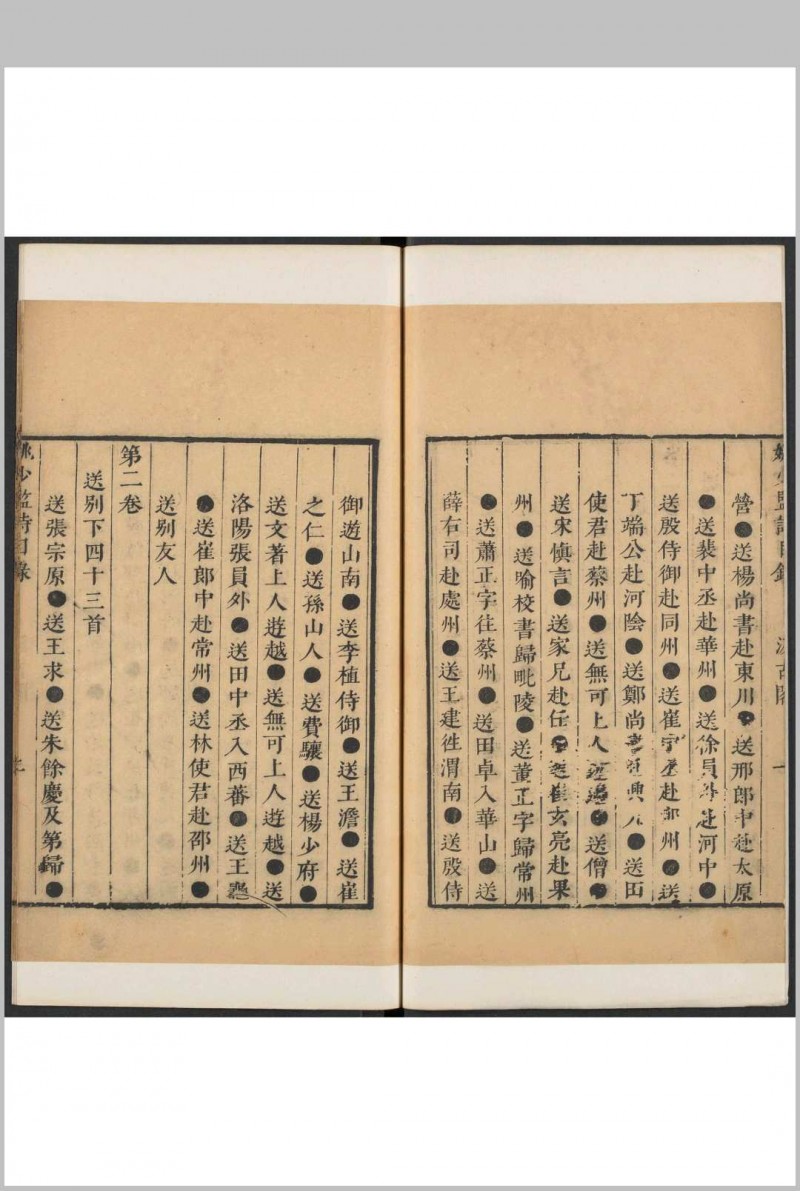 營●送楊尚書赴東川●送邢郎中赴太原
●送裴中丞赴華州●送徐員外赴河中●
送殷侍御赴同州●送崔中丞赴鄭州●送
丁端公赴河陰●送鄭尚書赴興元●送田
使君赴蔡州●送無可上人遊邊●送僧●
送宋慎言●送家兄赴任●送崔玄亮赴果
州●送喻校書歸毗陵●送董正字歸常州
●送蕭正字往蔡州●送田卓入華山●送
薛右司赴處州●送王建往渭南●送殷侍
御遊山南●送李植侍御●送王澹●送崔
之仁●送孫山人●送費驤●送楊少府●
送文著上人遊越●送無可上人遊越●送
洛陽張員外●送田中丞入西蕃●送王
●送崔郎中赴常州●送林使君赴邵州●
送別友人
第二卷
送別下四十三首
送張宗原●送王求●送朱餘慶及第歸●
姚少監詩目錄